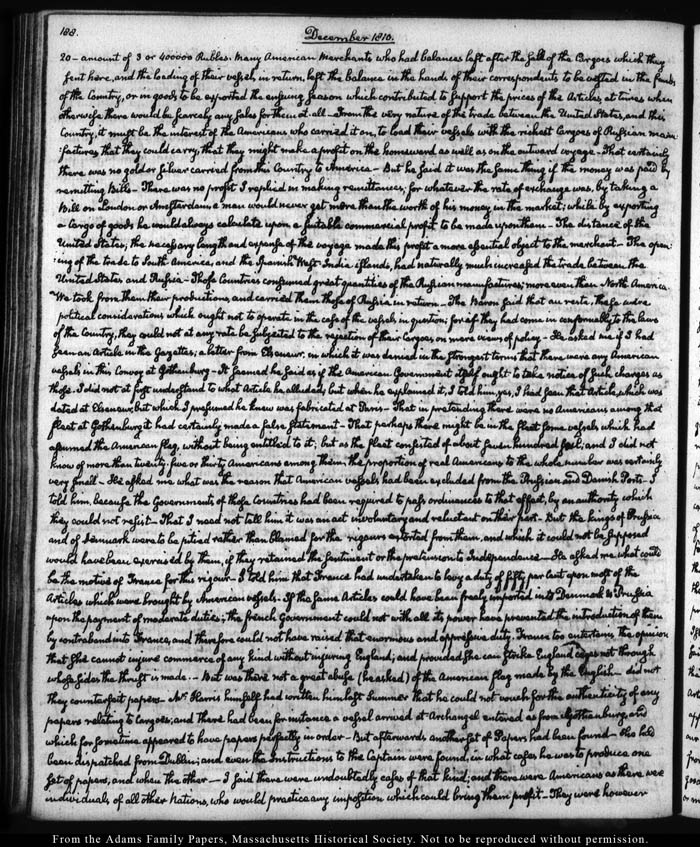 188.
December 1810.
20 - amount of 3 or 400000 Rubles. Many American Merchants who had balances left after the sale of the Cargoes which they
sent here, and the loading of their vessels in return, left the balance in the hands of their correspondents to be vested in the funds
of the Country, or in goods to be exported the ensuing season which contributed to support the prices of the Articles, at times when
otherwise there would be scarcely any sales for them at all - From the very nature of the trade between the United States, and this
Country, it must be the interest of the Americans who carried it on, to load their vessels with the richest Cargoes of Russian manu-
:factures that they could carry, that they might make a profit on the homeward as well as on the outward voyage - That certainly
there was no gold or silver carried from this Country to America - But he said it was the same thing if the money was paid by
remitting Bills - There was no profit I replied in making remittances; for whatever the rate of exchange was, by taking a
Bill on London or Amsterdam a man would never get more than the worth of his money in the market; while by exporting
a Cargo of goods he would always calculate upon a suitable commercial profit to be made upon them - The distance of the
United States, the necessary length and expense of the voyage made this profit a more essential object to the merchant - The open-
:ing of the trade to South America, and the Spanish West-India islands, had naturally much increased the trade between the
United States and Russia - Those Countries consumed great quantities of the Russian manufactures; more even than North America.
We took from them their productions, and carried them those of Russia in return - The Baron said that au reste, these were
political considerations which ought not to operate in the case of the vessels in question; for if they had come in conformably to the laws
of the Country, they could not at any rate be subjected to the rejection of their Cargoes, on mere views of policy - He asked me if I had
seen an Article in the Gazettes; a letter from Elseneur, in which it was denied in the strongest terms that there were any American
vessels in this Convoy at Gothenburg - It seemed he said as if the American Government itself ought to take notice of such charges as
those. I did not at first understand to what Article he alluded; but when he explained it, I told him, yes, I had seen that Article, which was
dated at Elseneur, but which I presumed he knew was fabricated at Paris - That in pretending there were no Americans among that
fleet at Gothenburg it had certainly made a false statement - That perhaps there might be in the fleet some vessels which had
assumed the American flag, without being entitled to it; but as the fleet consisted of about seven hundred sail, and I did not
know of more than twenty-five or thirty Americans among them, the proportion of real Americans to the whole number was certainly
very small - He asked me what was the reason that American vessels had been excluded from the Prussian and Danish Ports - I
told him, because the Governments of those Countries had been required to pass ordinances to that effect, by an authority which
they could not resist - That I need not tell him it was an act involuntary and reluctant on their part - But the kings of Prussia
and of Denmark were to be pitied rather than blamed for the rigours exerted from them, and which it could not be supposed
would have been exercised by them, if they retained the sentiment or the pretension to Independence - He asked me what could
be the motive of France for this rigour - I told him that France had undertaken to levy a duty of fifty per cent upon most of the
Articles which were brought by American vessels. If the same Articles could have been freely imported into Denmark & Prussia
upon the payment of moderate duties; the french Government could not with all its power have prevented the introduction of them
by contraband into France, and therefore could not have raised that enormous and oppressive duty. France too entertains the opinion
that she cannot injure commerce of any kind without injuring England; and provided she can strike England cares not through
whose sides the thrust is made. - But was there not a great abuse (he asked) of the American flag made by the English - did not
they counterfeit papers - Mr Harris himself had written him last Summer that he could not vouch for the authenticity of any
papers relating to Cargoes; and there had been for instance a vessel arrived at Archangel entered as from Gothenburg, and
which for sometime appeared to have papers perfectly in order - But afterwards another set of Papers had been found - She had
been dispatched from Dublin; and even the Instructions to the Captain were found, in what cases he was to produce one
set of papers, and when the other - I said there were undoubtedly cases of that kind; and there were Americans as there were
individuals of all other Nations, who would practice any imposition which could bring them profit - They were however
From the Adams Family Papers, Massachusetts Historical Society. Not to be reproduced without permission.